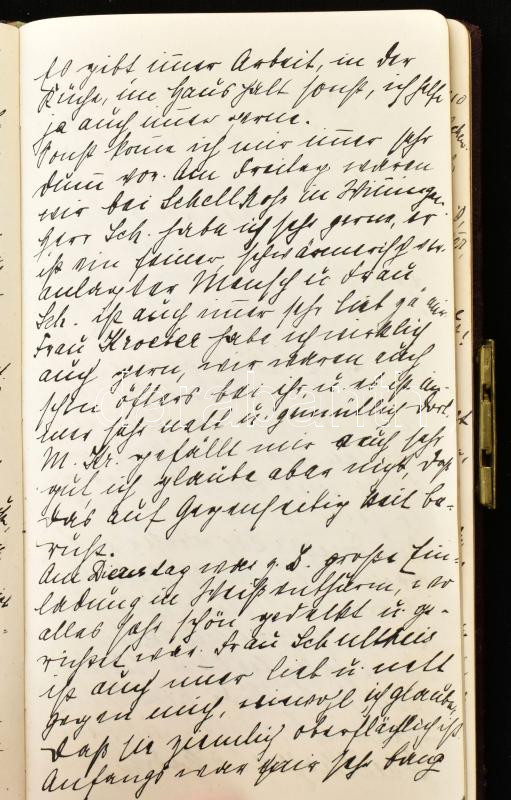 Es gibt im̅er Arbeit, in der
Küche, im Haushalt sonst, ich helfe
ja auch im̅er gerne.
Sonst kom̅e ich mir im̅er sehr
dum̅ vor. Am Freitag waren
wir bei Schellkops in
Herr Sch. habe ich sehr gerne, er
ist ein feiner schwärmerisch ver-
anlagter Mensch u. Frau
Sch. ist auch im̅er sehr lieb zu mir
Frau Kroeber habe ich wirklich
auch gern, wir waren auch
schon öfters bei ihr u. es ist im-
mer sehr nett u. gemütlich dort.
M. Kr. gefällt mir auch sehr
gut ich glaube aber nicht, daß
das auf Gegenseitigkeit be-
ruht.
Am Dienstag war z. B. große Ein-
ladung in Weißenthurm, wo
alles sehr schön gedeckt u. ge-
richtet war. Frau Schultheis
ist auch im̅er lieb u. nett
gegen mich, wiewohl ich glaube,
daß sie ziemlich oberflächlich ist
Anfangs war mir sehr bang